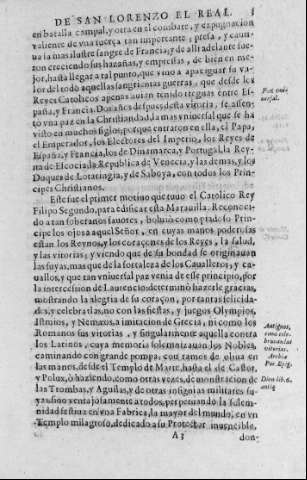 DE SAN LORENZO EL REAL. 5
en batalla campal, y otra en el combate, y expugnacion
valiente de vna fuerça tan importante, presa, y cauti-
ua la mas ilustre sangre de Francia, y de alli adelante fue-
ron creciendo sus hazañas, y empresas, de bien en me-
jor, hasta llegar a tal punto, que vino a apaziguar su va-
lor del todo aquellas sangrientas guerras, que desde los
Reyes Catolicos apenas auian tenido treguas entre Es-
paña, y Francia. Dos años despues desta vitoria, se assen-
tò vna paz en la Christiandad, la mas vniuersal que se ha
Paz vniuersal.
visto en muchos siglos, porque entraron en ella, el Papa,
el Emperador, los Electores del Imperio, los Reyes de
España, y Francia, los de Dinamarca, y Portugal, la Rey-
na de Escocia, la Republica de Venecia, y las demas, y los
Duques de Lotaringia, y de Saboya, con todos los Prin-
cipes Christianos.
Este fue el primer motiuo que tuuo el Catolico Rey
Filipo Segundo, para edificar esta Marauilla. Reconoci-
do a tan soberanos fauores, boluiò como piadoso Prin-
cipe los ojos a aquel Señor, en cuyas manos poderosas
estan los Reynos, y los coraçones de los Reyes, la salud,
y las vitorias, y viendo que de su bondad se originauan
las suyas, mas que de la fortaleza de los Caualleros, y ca-
uallos, y que tan vniuersal paz venia de este principio, por
la intercession de Laurencio determinò hazerle gracias,
mostrando la alegria de su coraçon, por tantas felicida-
des, y celebrarlas, no con las fiestas, y juegos Olympios,
Istmios, y Nemæos a imitacion de Grecia, ni como los
Romanos sus vitorias, y singularmente aquella contra
los Latinos, cuya memoria solemnizauan los Nobles,
caminando con grande pompa, con ramos de oliua en
las manos, desde el Templo de Marte, hasta el de Castor,
y Polux, ò haziendo, como otras vezes, demonstracion de
las Trombas, y Aguilas, y de otras insignias militares su-
Antiguos, como celebrauan las vitorias.
Dion lib. 6. antiq.
yas, sino venta josamente a todos, perpetuando la solem-
nidad festiua en vna Fabrica, la mayor del mundo, en vn
Templo milagroso, dedicado a su Protector inuencible,
A3 don-